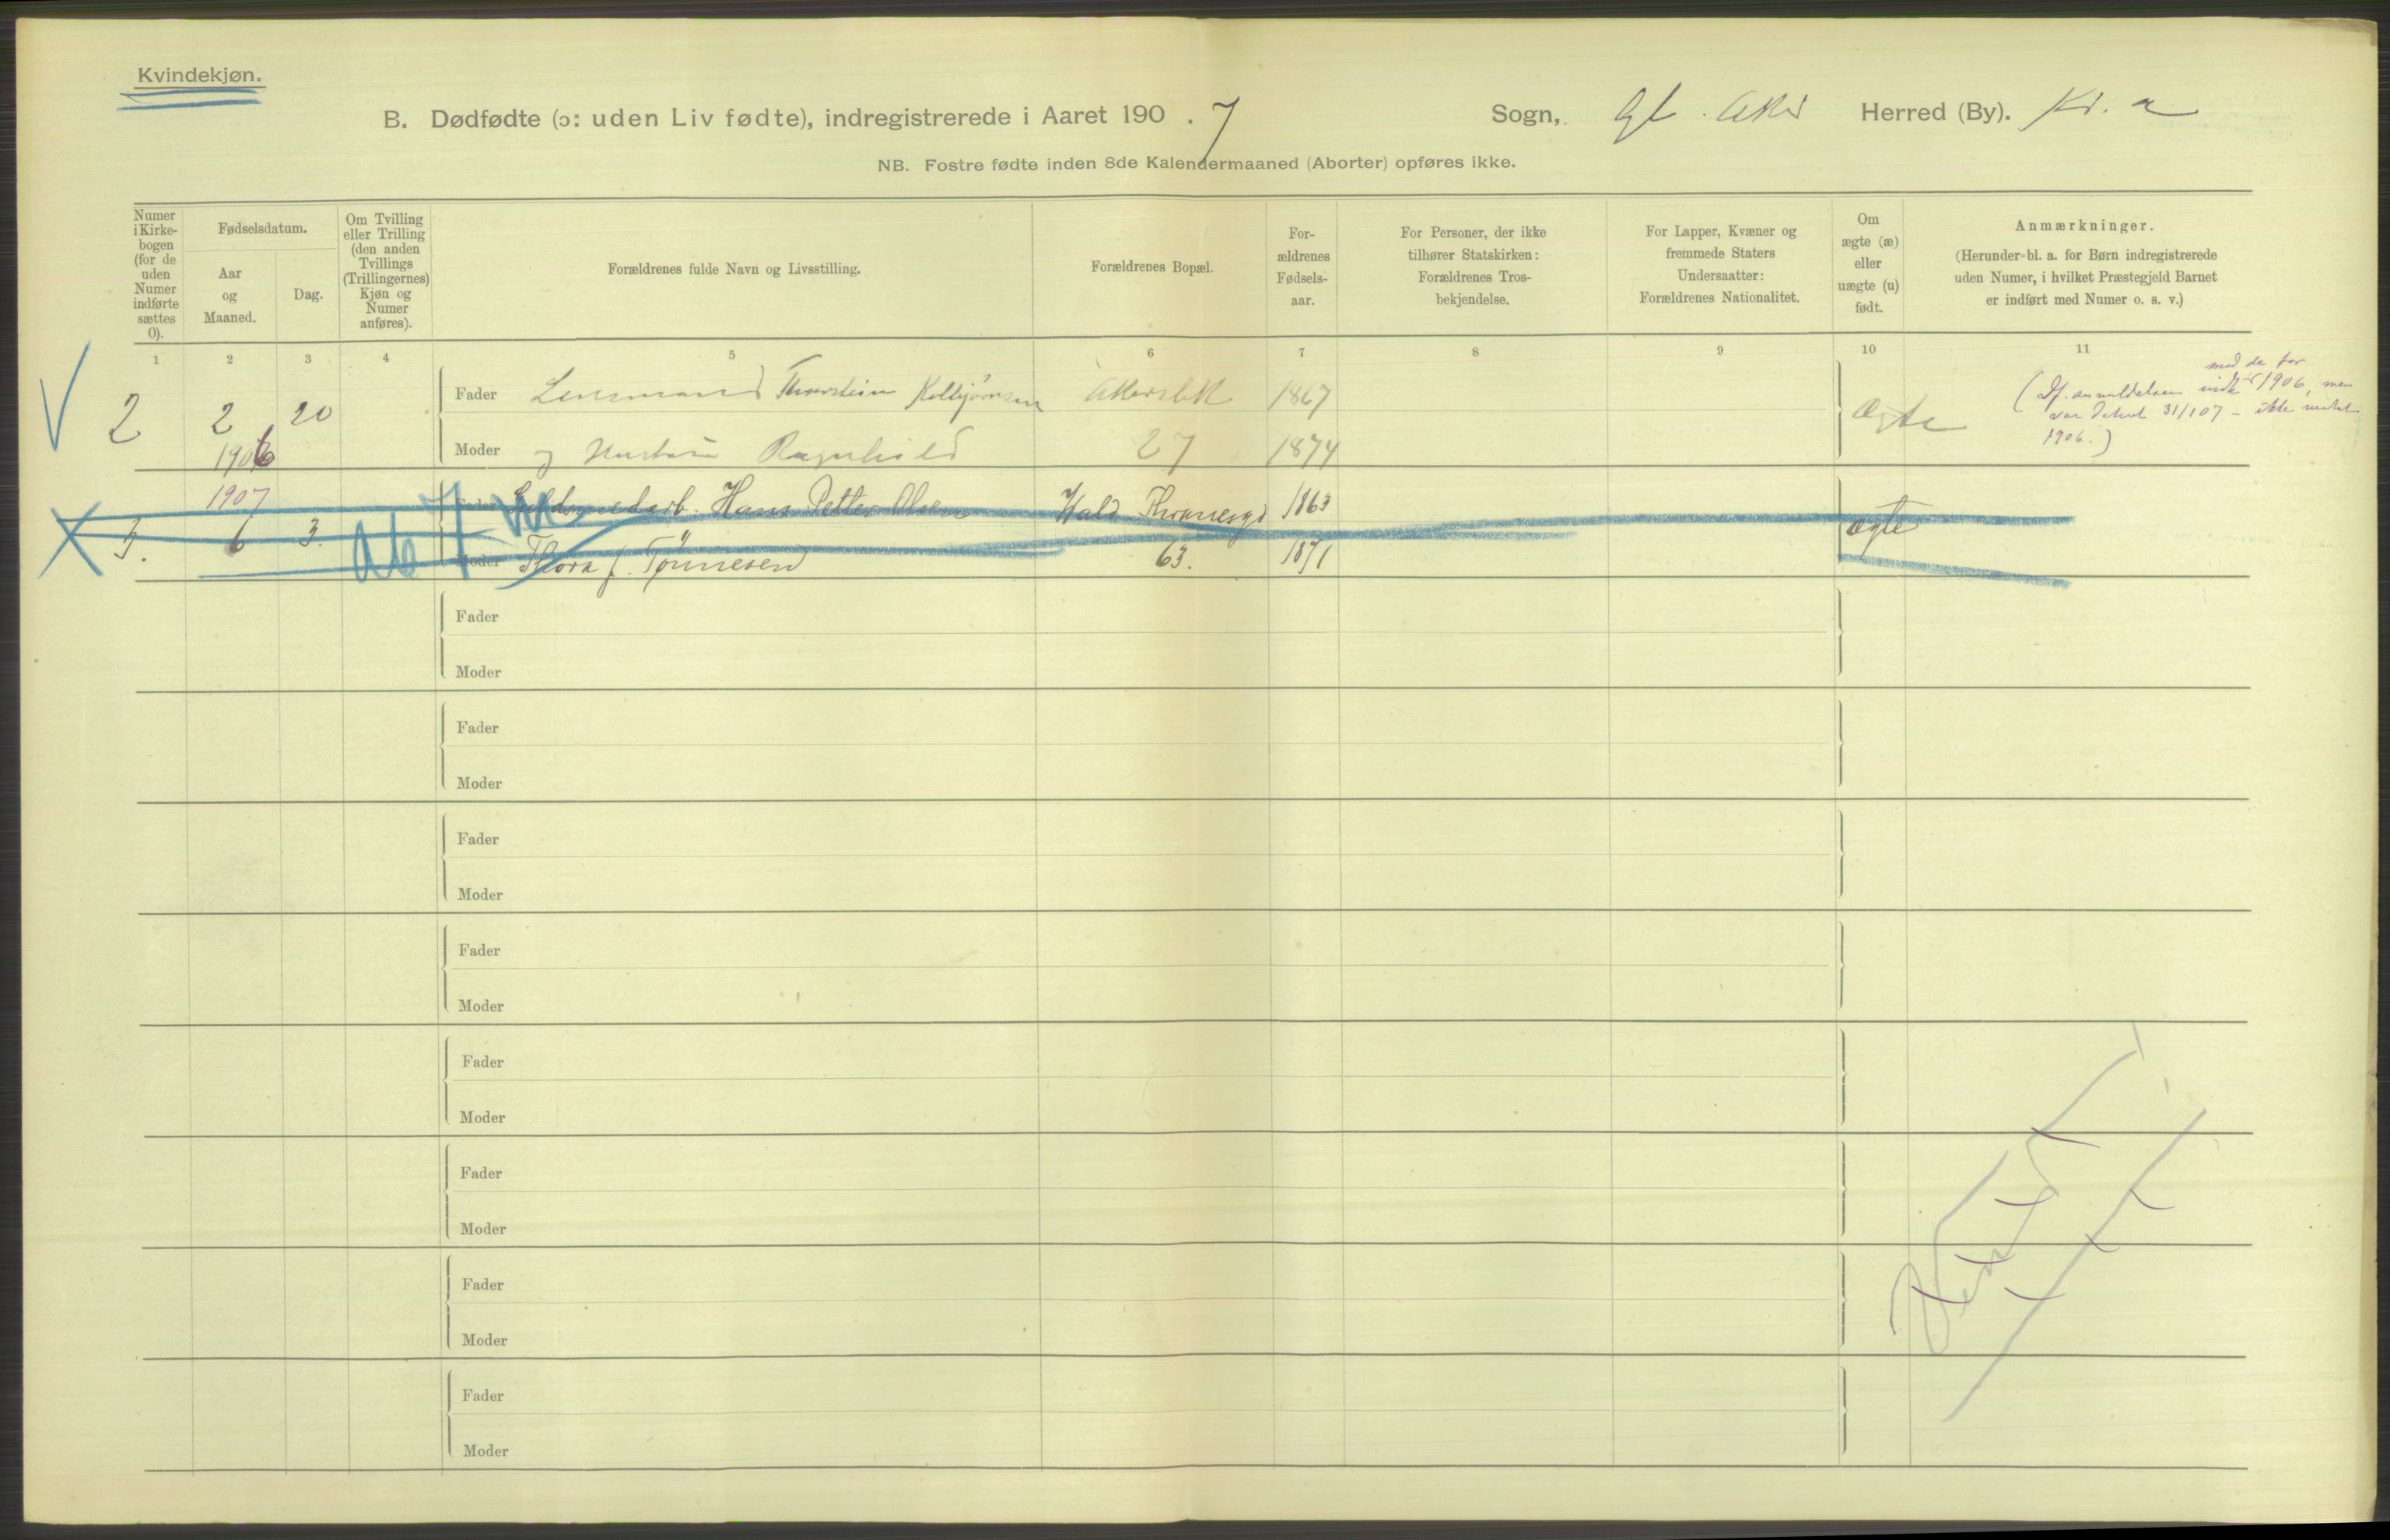 Kvindekjøn.
B. Dødfødte (ɔ: uden Liv fødte), indregistrerede i Aaret 190 . 7 Sogn, Gl. Aker Herred (By). Kr. a
NB. Fostre fødte inden 8de Kalendermaaned (Aborter) opføres ikke.
Numer i Kirkebogen (for de uden Numer indførte sættes 0).
Fødselsdatum.
Aar og Maaned.
Dag.
Om Tvilling eller Trilling (den anden Tvillings (Trillingernes) Kjøn og Numer anføres).
Forældrenes fulde Navn og Livsstilling.
Forældrenes Bopæl.
For-
ældrenes
Fødsels-
aar.
For Personer, der ikke
tilhører Statskirken:
Forældrenes Tros-
bekjendelse.
For Lapper, Kvæner og
fremmede Staters
Undersaatter:
Forældrenes Nationalitet.
Om
ægte (æ)
eller
uægte (u)
født.
Anmærkninger.
(Herunder bl. a. for Børn indregistrerede
uden Numer, i hvilket Præstegjeld Barnet
er indført med Numer o. s. v.)
1 2 3 4 5 6 7 8 9 10 11
V 2 2 20 Fader Lensmand Thorstein Kolbjørnsen Akersbk 1867 Ægte
1906 Moder og Hustru Ragnhild 27 1874
med de for
1906, men
31/1 07 - ikke
1906.)
1907 Fader Guldsmedarb. Hans Petter Olsen Wald. Thranesgd 1863 ægte
X 3. 6 3. Moder Thora f. Tønnesen 63. 1871
Fader
Moder
Fader
Moder
Fader
Moder
Fader
Moder
Fader
Moder
Fader
Moder
Fader
Moder
Fader
Moder